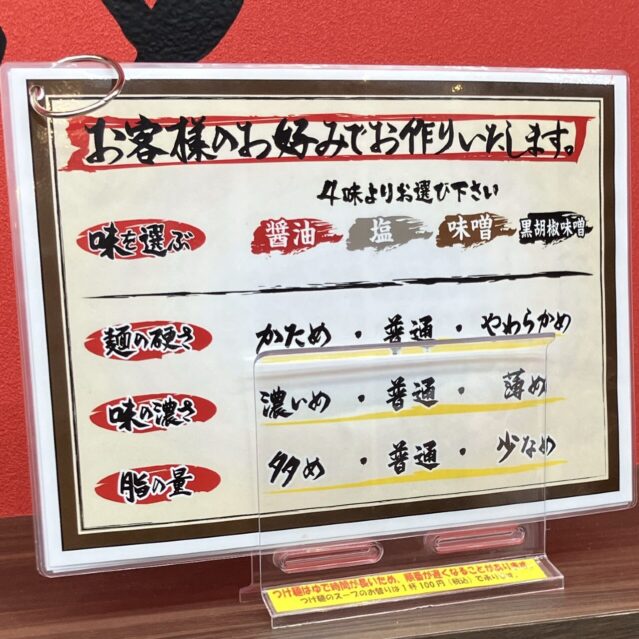 お客様のお好みでお作りいたします。
4味よりお選び下さい
味を選ぶ 醤油 塩 味噌 黒胡椒味噌
麺の硬さ かため ・ 普通 ・ やわらかめ
味の濃さ 濃いめ ・ 普通 ・ 薄め
脂の量 多め ・ 普通 ・ 少なめ
つけ麺はゆで時間が長いため、順番が遅くなることがあります
つけ麺のスープのお替りは1杯100円(税込)で承ります。